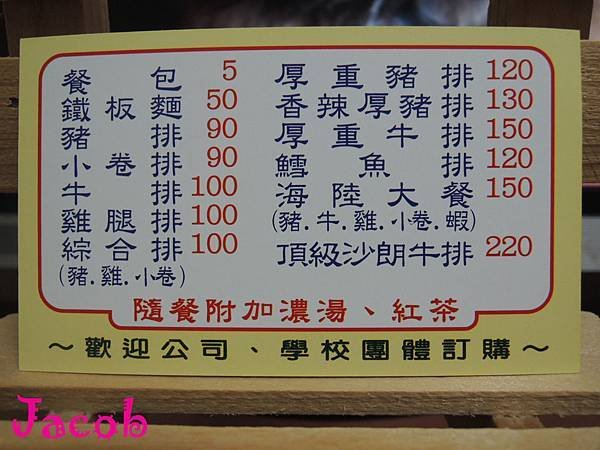 餐包 5
鐵板麵 50
豬排 90
小卷排 90
牛排 100
雞腿排 100
綜合排 100
(豬.雞.小卷)
厚重豬排 120
香辣厚豬排 130
厚重牛排 150
鱈魚排 120
海陸大餐 150
(豬.牛.雞.小卷.蝦)
頂級沙朗牛排 220
隨餐附加濃湯、紅茶
~歡迎公司、學校團體訂購~
Jacob